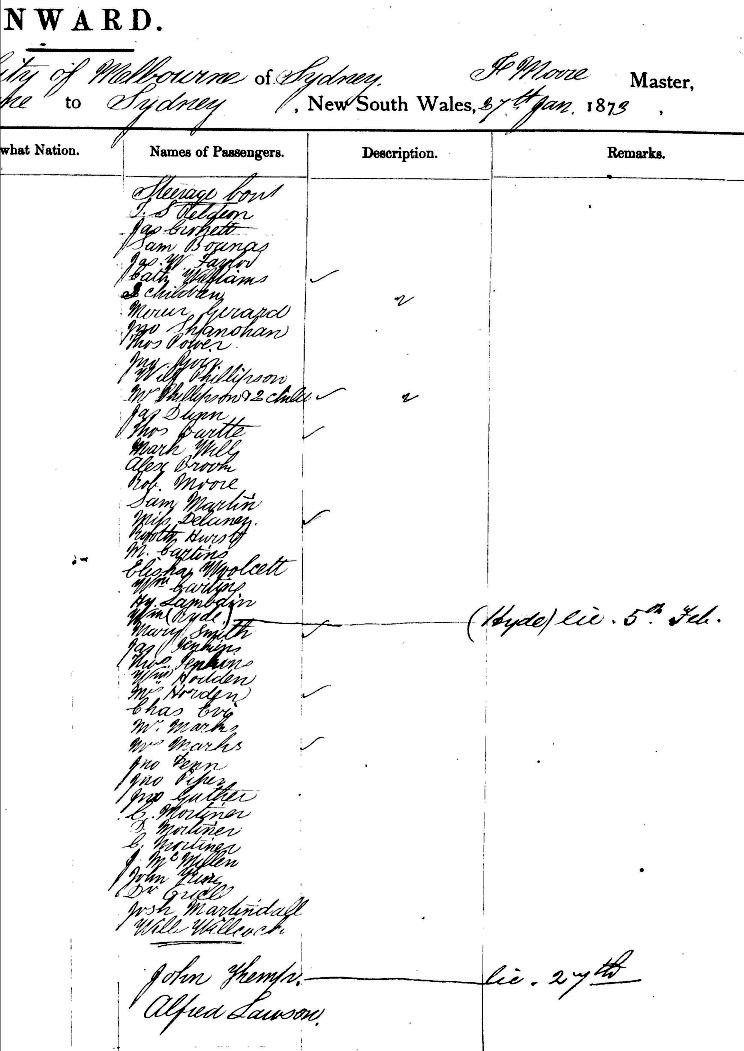 NWARD.
City of Melbourne of Sydney. F Moore Master,
ne to Sydney, New South Wales, 27th Jan. 1873,
what Nation. Names of Passengers. Description. Remarks.
Steerage cont
T. S
Jas
Sam
Jas. W. Taylor
Cath Williams
children
Gerard
Jno Shanohan
Thos Power
Jno
Will Phillipson
Mrs Phillipson & 2 child
Jas Dunn
Thos
Mark Mills
Alex Broom
Rob. Moore
Sam Martin
Miss Delaney.
Hurst
M.
Elisha Woolcett
Wm
Hy
Wm (Ryde) (Hyde) lic. 5th Feb.
Mary Smith
Jas Jenkins
Thos Jenkins
Wm Houlden
Mrs Horden
Chas
Mr. Marks
Mrs Marks
Jno Fenn
Jno Piper
Jno
C. Mortimer
Mortimer
C. Mortimer
J. McMillen
John King
Dr
Josh Martindall
Will Willcock
John Khemp. lic. 27th
Alfred Lawson.